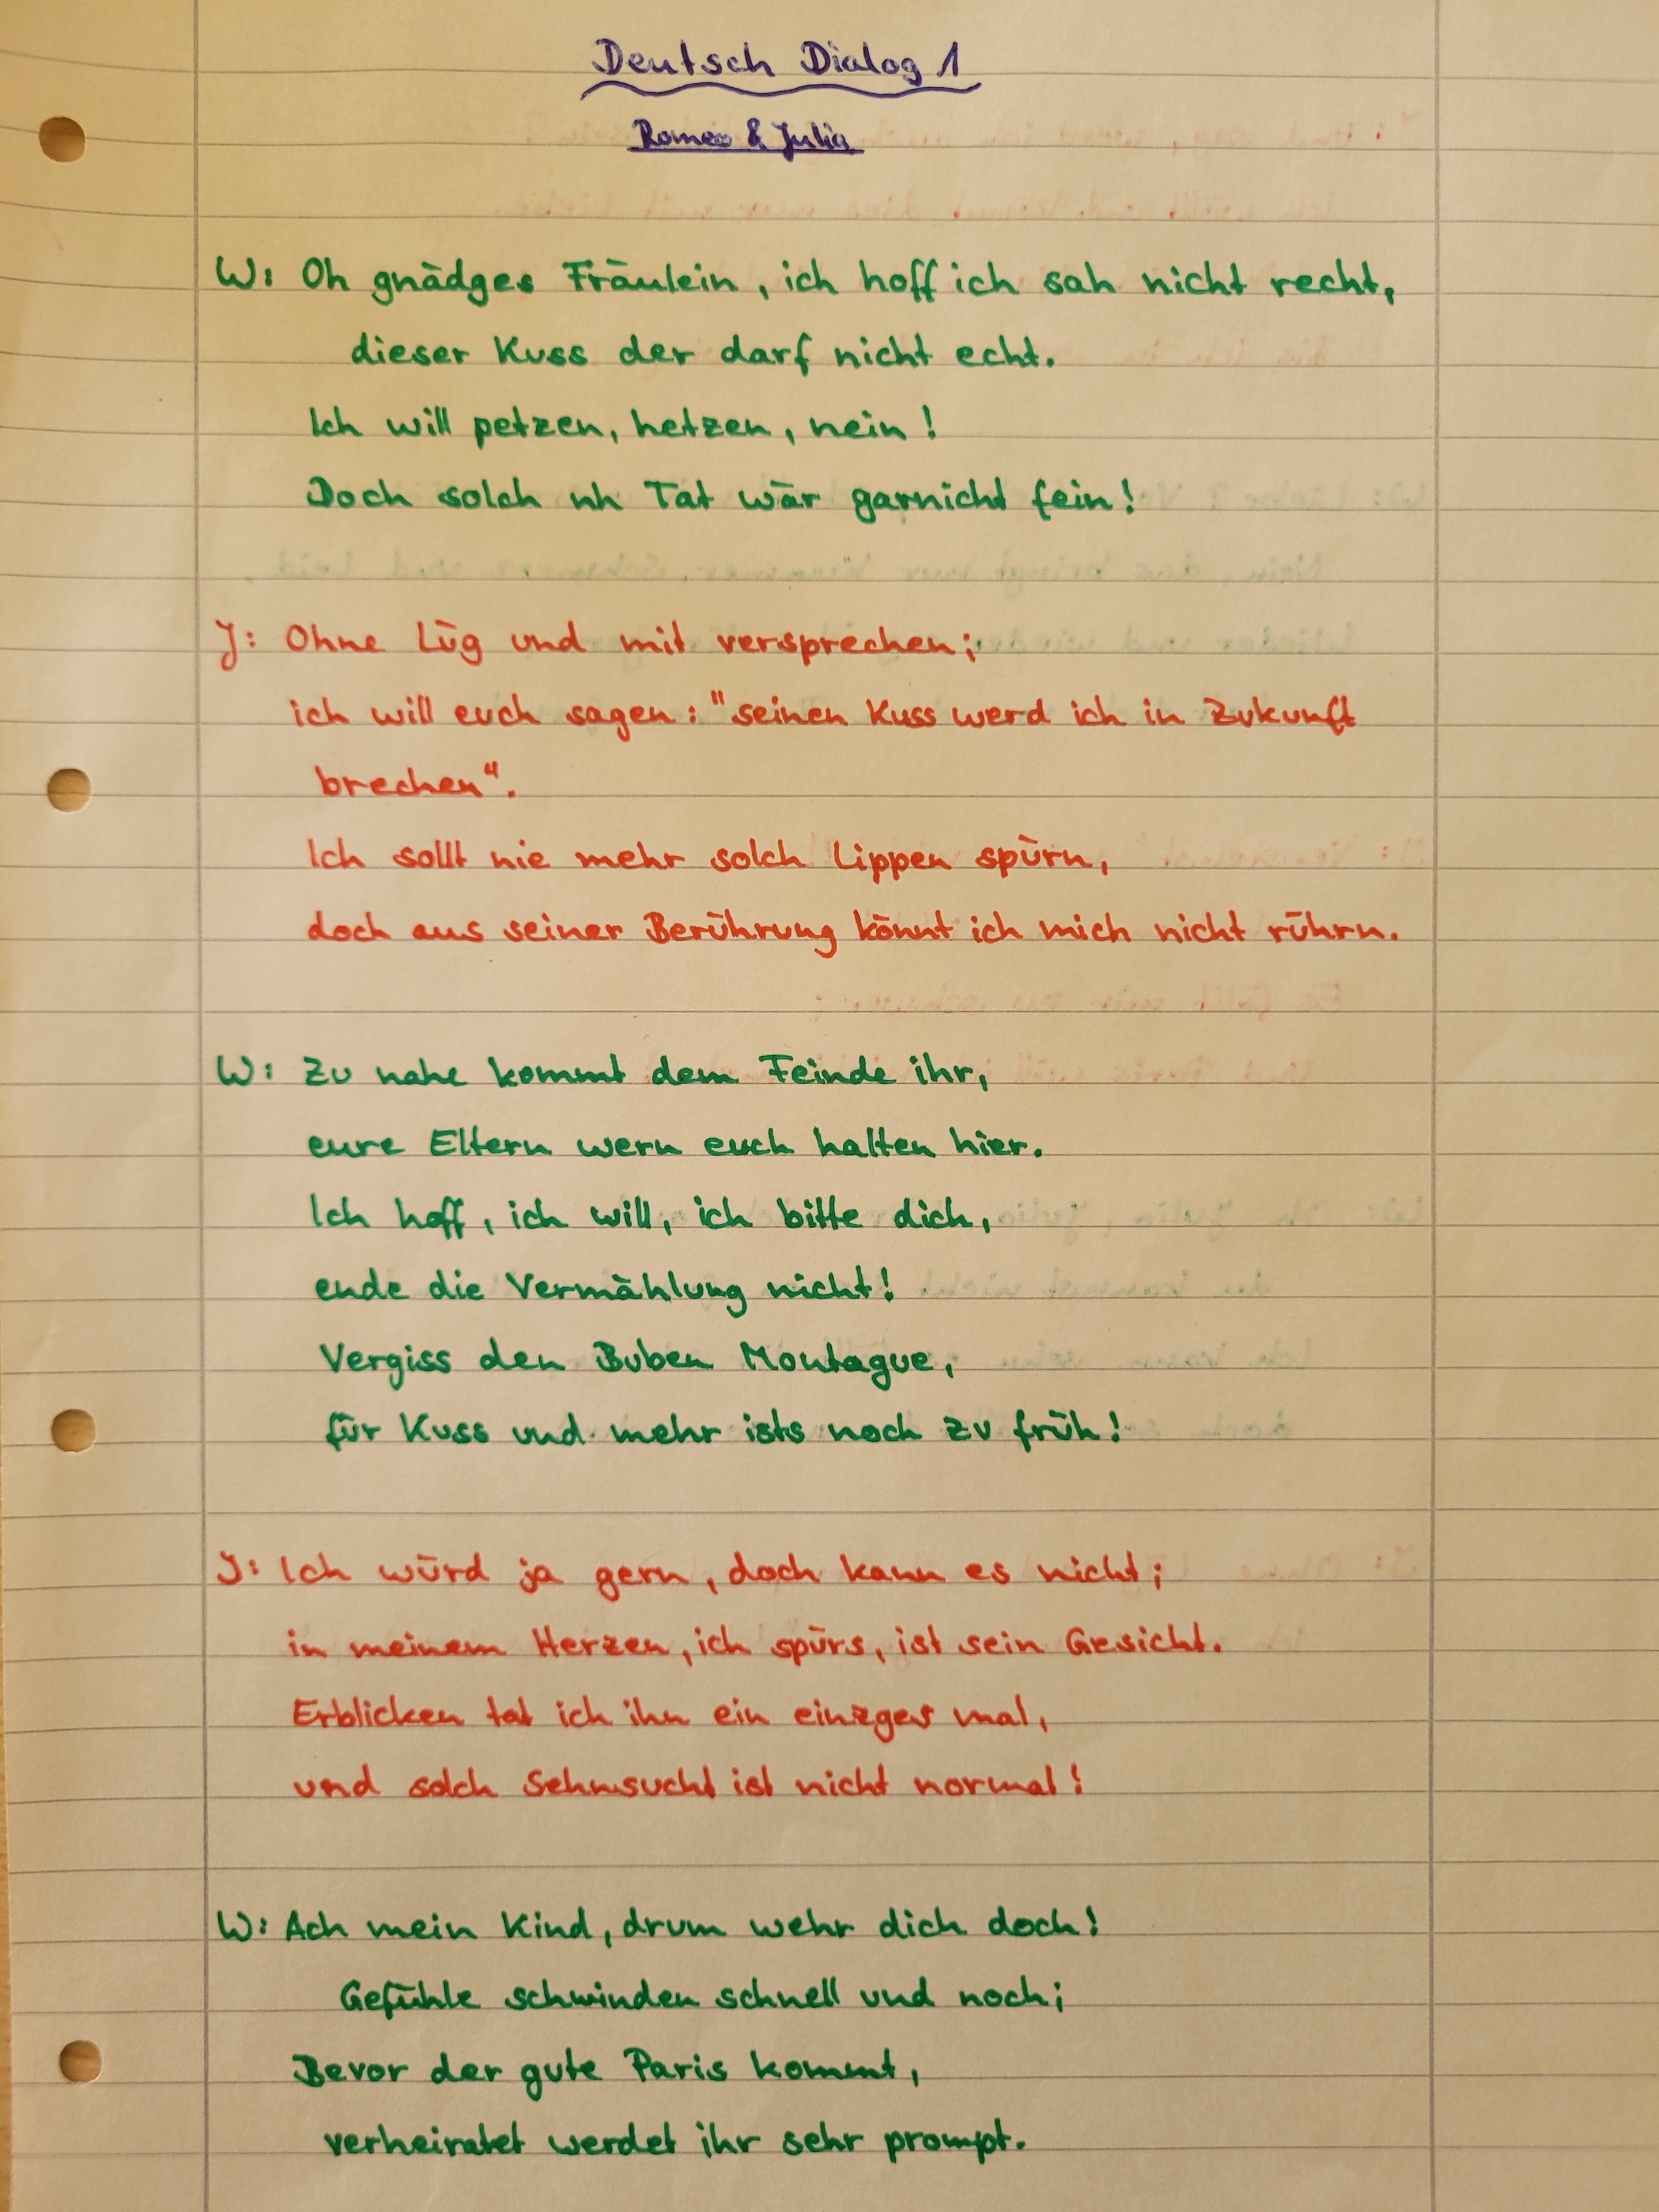 Deutsch Dialog 1
Romeo & Julia
W: Oh gnädges Fräulein, ich hoff ich sah nicht recht,
dieser Kuss der darf nicht echt.
Ich will petzen, hetzen, nein!
Doch solch nh Tat wär garnicht fein!
J: Ohne Lüg und mit versprechen;
ich will euch sagen: "seinen Kuss werd ich in Zukunft
brechen".
Ich sollt nie mehr solch Lippen spürn,
doch aus seiner Berührung könnt ich mich nicht rührn.
W: Zu nahe kommt dem Feinde ihr,
eure Eltern wern euch halten hier.
Ich hoff, ich will, ich bitte dich,
ende die Vermählung nicht!
Vergiss den Buben Montague,
für Kuss und mehr ists noch zu früh!
J: Ich würd ja gern, doch kann es nicht;
in meinem Herzen, ich spürs, ist sein Gesicht.
Erblicken tat ich ihn ein einzges mal,
und solch Sehnsucht ist nicht normal!
W: Ach mein Kind, drum wehr dich doch!
Gefühle schwinden schnell und noch;
Bevor der gute Paris kommt,
verheiratet werdet ihr sehr prompt.